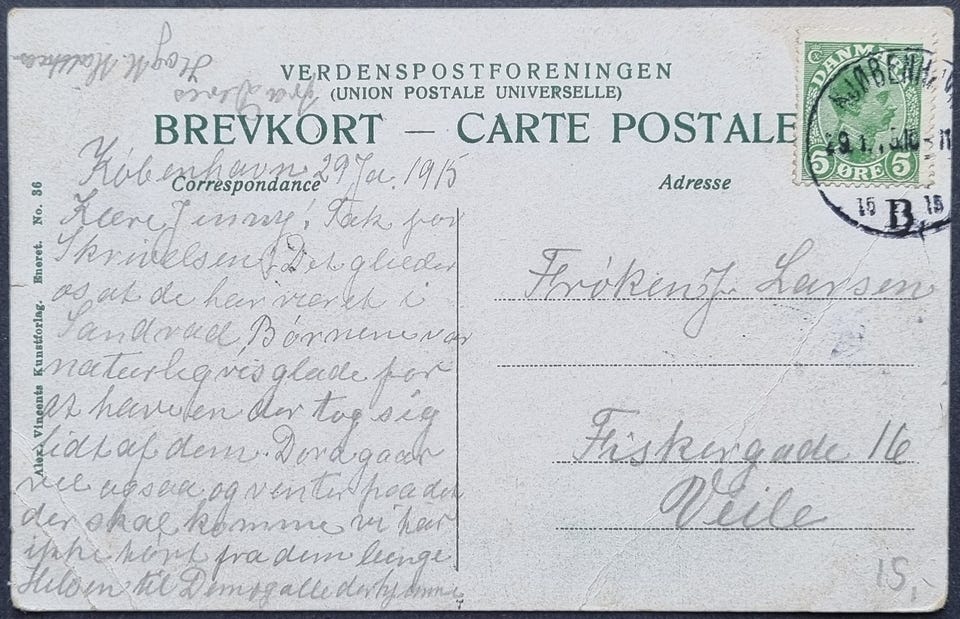 VERDENSPOSTFORENINGEN
(UNION POSTALE UNIVERSELLE)
BREVKORT — CARTE POSTALE
Correspondance
Adresse
DANMARK
5 ØRE 5
KJØBENHAVN
B
København 29 Ja. 1915
Kære Jenny! Tak for
Skrivelsen! Det glæder
os at de har været i
Sandvad, Børnene var
naturligvis glade for
at have en der tog sig
lidt af dem. Dora gaar
vel ogsaa og venter paa det
der skal komme vi har
ikke hørt fra dem længe
Hilsen til Dem og alle derhjemme
fra Deres
Frøken J. Larsen
Fiskergade 16
Veile
15,
Alex. Vincents Kunstforlag. Eneret. No. 36